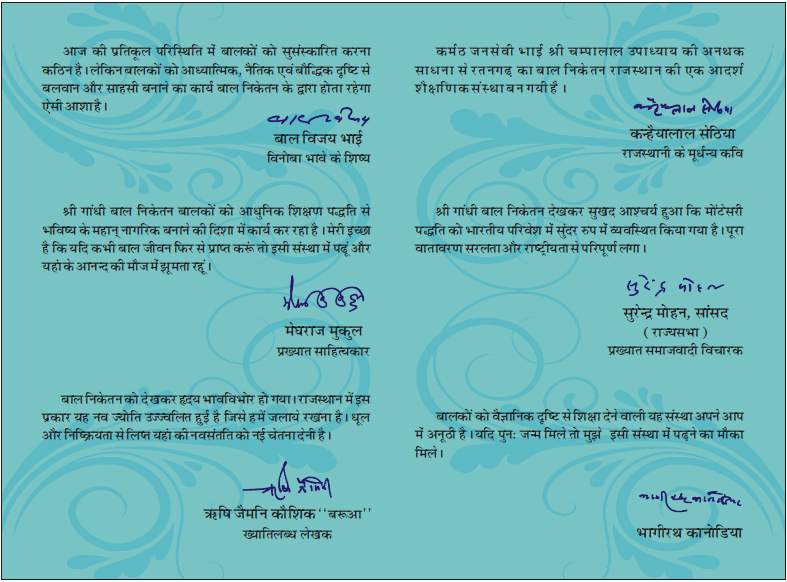 आज की प्रतिकूल परिस्थिति में बालकों को सुसंस्कारित करना
कठिन है। लेकिन बालकों को आध्यात्मिक, नैतिक एवं बौद्धिक दृष्टि से
बलवान और साहसी बनाने का कार्य बाल निकेतन के द्वारा होता रहेगा
ऐसी आशा है।
बाल विजय भाई
विनोबा भावे के शिष्य
श्री गांधी बाल निकेतन बालकों को आधुनिक शिक्षण पद्धति से
भविष्य के महान् नागरिक बनाने की दिशा में कार्य कर रहा है। मेरी इच्छा
है कि यदि कभी बाल जीवन फिर से प्राप्त करूं तो इसी संस्था में पढूं और
यहां के आनन्द की मौज में झूमता रहूं।
मेघराज मुकुल
प्रख्यात साहित्यकार
बाल निकेतन को देखकर हृदय भावविभोर हो गया। राजस्थान में इस
प्रकार यह नव ज्योति उज्ज्वलित हुई है जिसे हमें जलाये रखना है। धूल
और निष्क्रियता से लिप्त यहां की नवसंतति को नई चेतना देनी है।
ऋषि जैमनि कौशिक ‘‘बरूआ’’
ख्यातिलब्ध लेखक
कर्मठ जनसेवी भाई श्री चम्पालाल उपाध्याय की अनथक
साधना से रतनगढ़ का बाल निकेतन राजस्थान की एक आदर्श
शैक्षणिक संस्था बन गयी है।
कन्हैयालाल सेठिया
कन्हैयालाल सेठिया
राजस्थानी के मूर्धन्य कवि
श्री गांधी बाल निकेतन देखकर सुखद आश्चर्य हुआ कि मोंटेसरी
पद्धति को भारतीय परिवेश में सुंदर रुप में व्यवस्थित किया गया है। पूरा
वातावरण सरलता और राष्ट्रीयता से परिपूर्ण लगा।
सुरेन्द्र मोहन
सुरेन्द्र मोहन, सांसद
( राज्यसभा )
प्रख्यात समाजवादी विचारक
बालकों को वैज्ञानिक दृष्टि से शिक्षा देने वाली यह संस्था अपने आप
में अनूठी है। यदि पुनः जन्म मिले तो मुझे इसी संस्था में पढ़ने का मौका
मिले।
भागीरथ कानोडिया